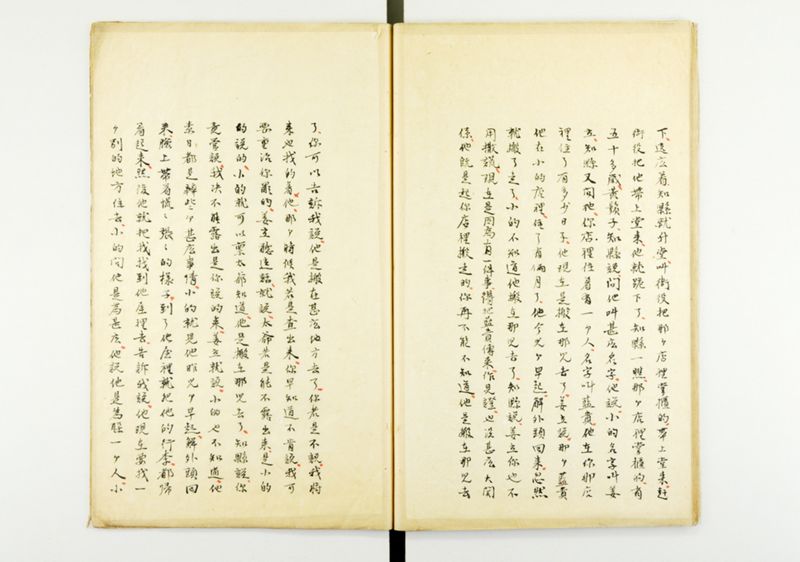 下這麼着知縣就升堂叫衙役把那个店裡掌櫃的帶上堂來赶
衙役把他帶上堂來他就跪下了知縣一瞧那个店裡掌櫃的有
五十多歲黃鬍子知縣說問他叫甚麼名字他說小的名字叫姜
立知縣又問他你店裡住着有一个人名字叫藍貴他在你那店
裡住了有多少日子他現在是搬在那兒去了姜立說那个藍貴
他在小的店裡住了有倆月了他今兒个早起觧外頭回來忽然
就搬了走了小的不知道他搬在那兒去了知縣說姜立你也不
用撒謊現在是因為有一件事情得把藍貴傳來作見證也沒甚麼大関
係他旣是起你店裡搬走的你再不能不知道他是搬在那兒去
了你可以告訴我說他是搬在甚麼地方去了你若是不說我將
來也找的着他那个時候我若是查出來你早知道不肯說我可
要重治你罪的姜立聽這話就說太爺若是能不露出來是小的
的說的小的就可以禀太爺知道他是搬在那兒去了知縣說你
竟管說我决不能露出是你說的來姜立就說小的也不知道他
素日都是幹些个甚麼事情小的就見他昨兒个早起觧外頭回
來臉上帶着慌慌張張的樣子到了他屋裡就把他的行李都歸
着起來然後他就把我找到他屋裡去告訴我說他現在要找一
个別的地方住去小的問他是爲甚麼他說他是爲躱一个人小